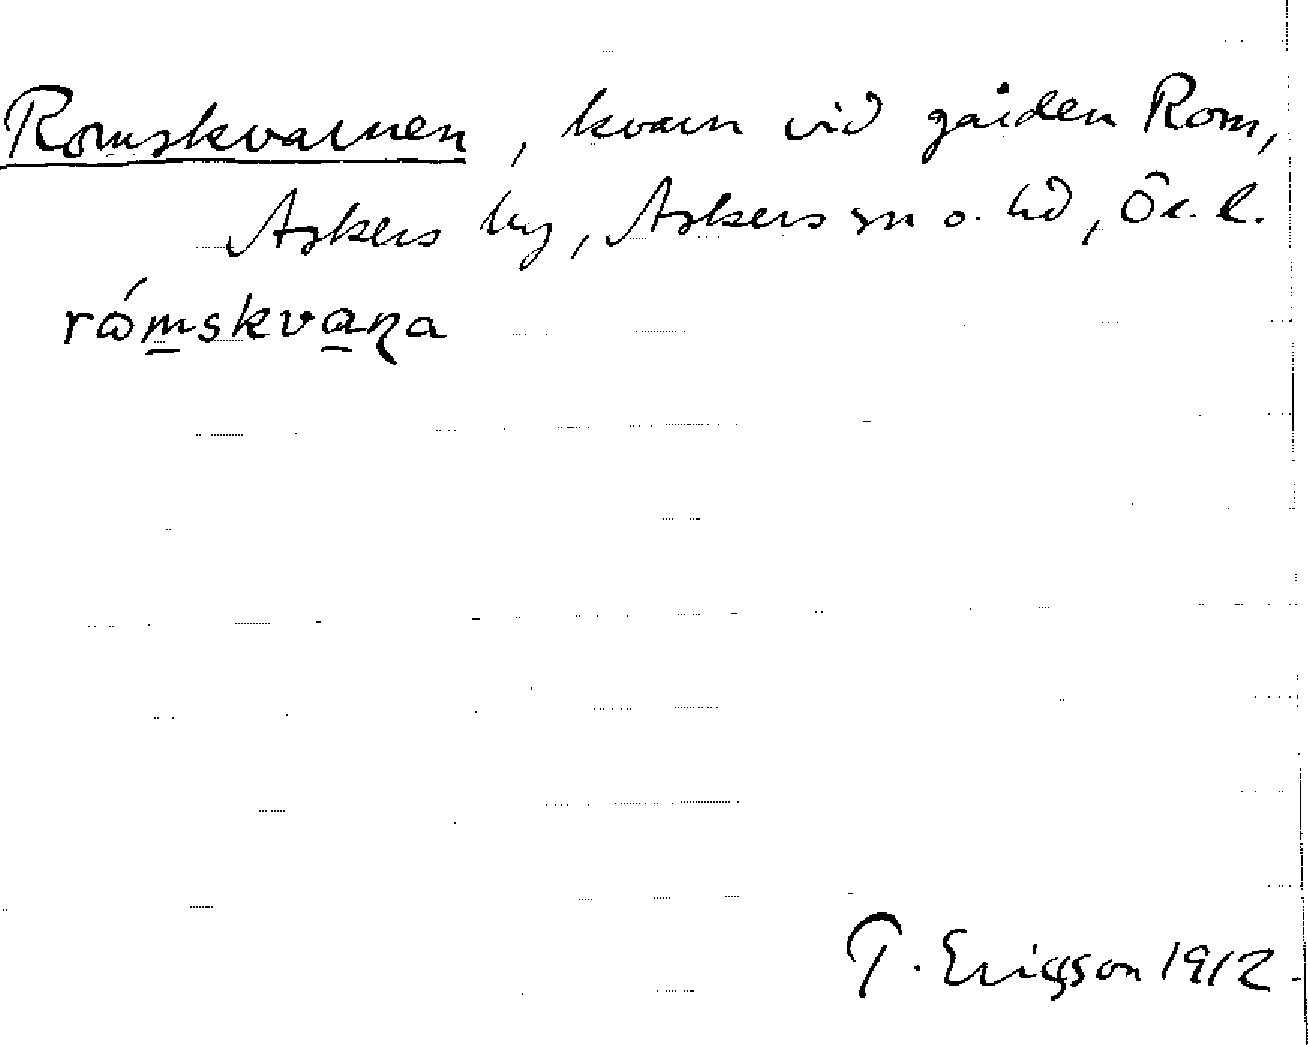 Romskvarnen, kvarn vid gården Rom,
Askers by, Askers sn o. hd, Ör. l.
rώm̲skva̲ɳa
G. Ericsson 1912